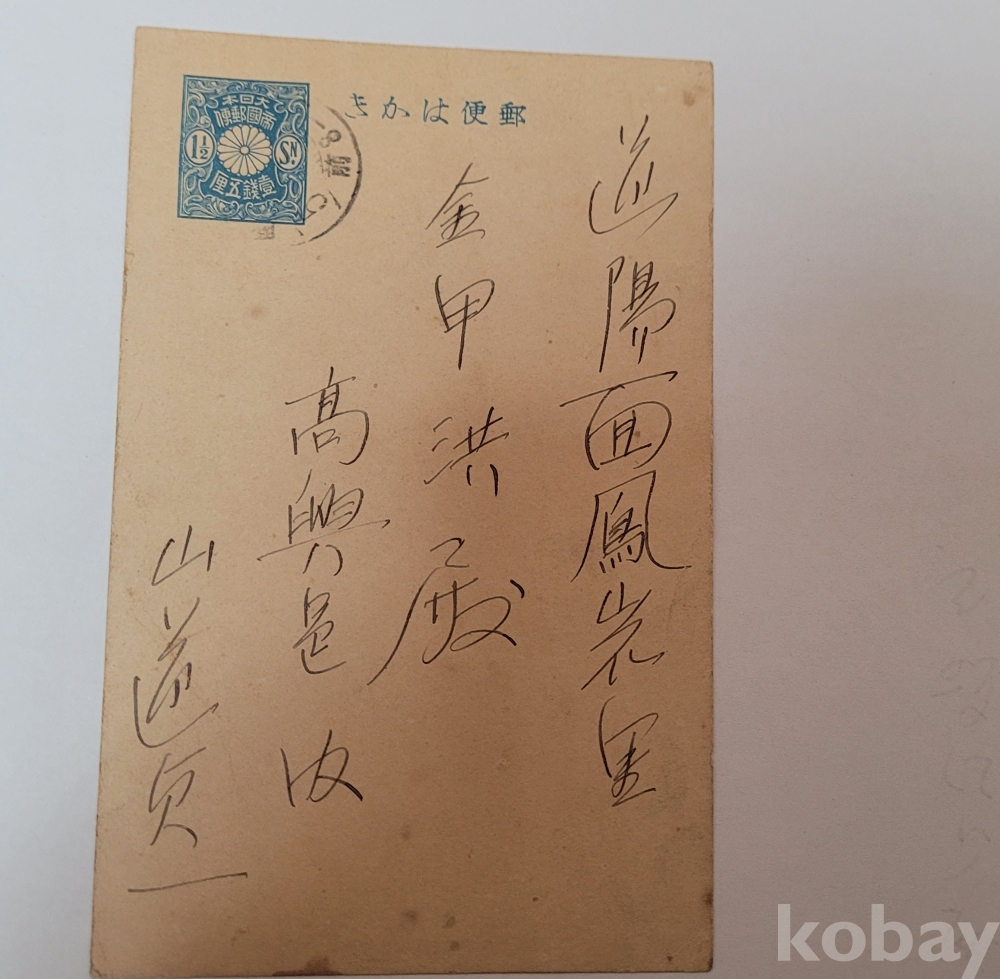 郵便はかき
大日本
帝國郵便
1½ SN.
壹錢五厘
道陽面鳳岩里
金甲洪殿
高興邑内
山道貞一
kobay